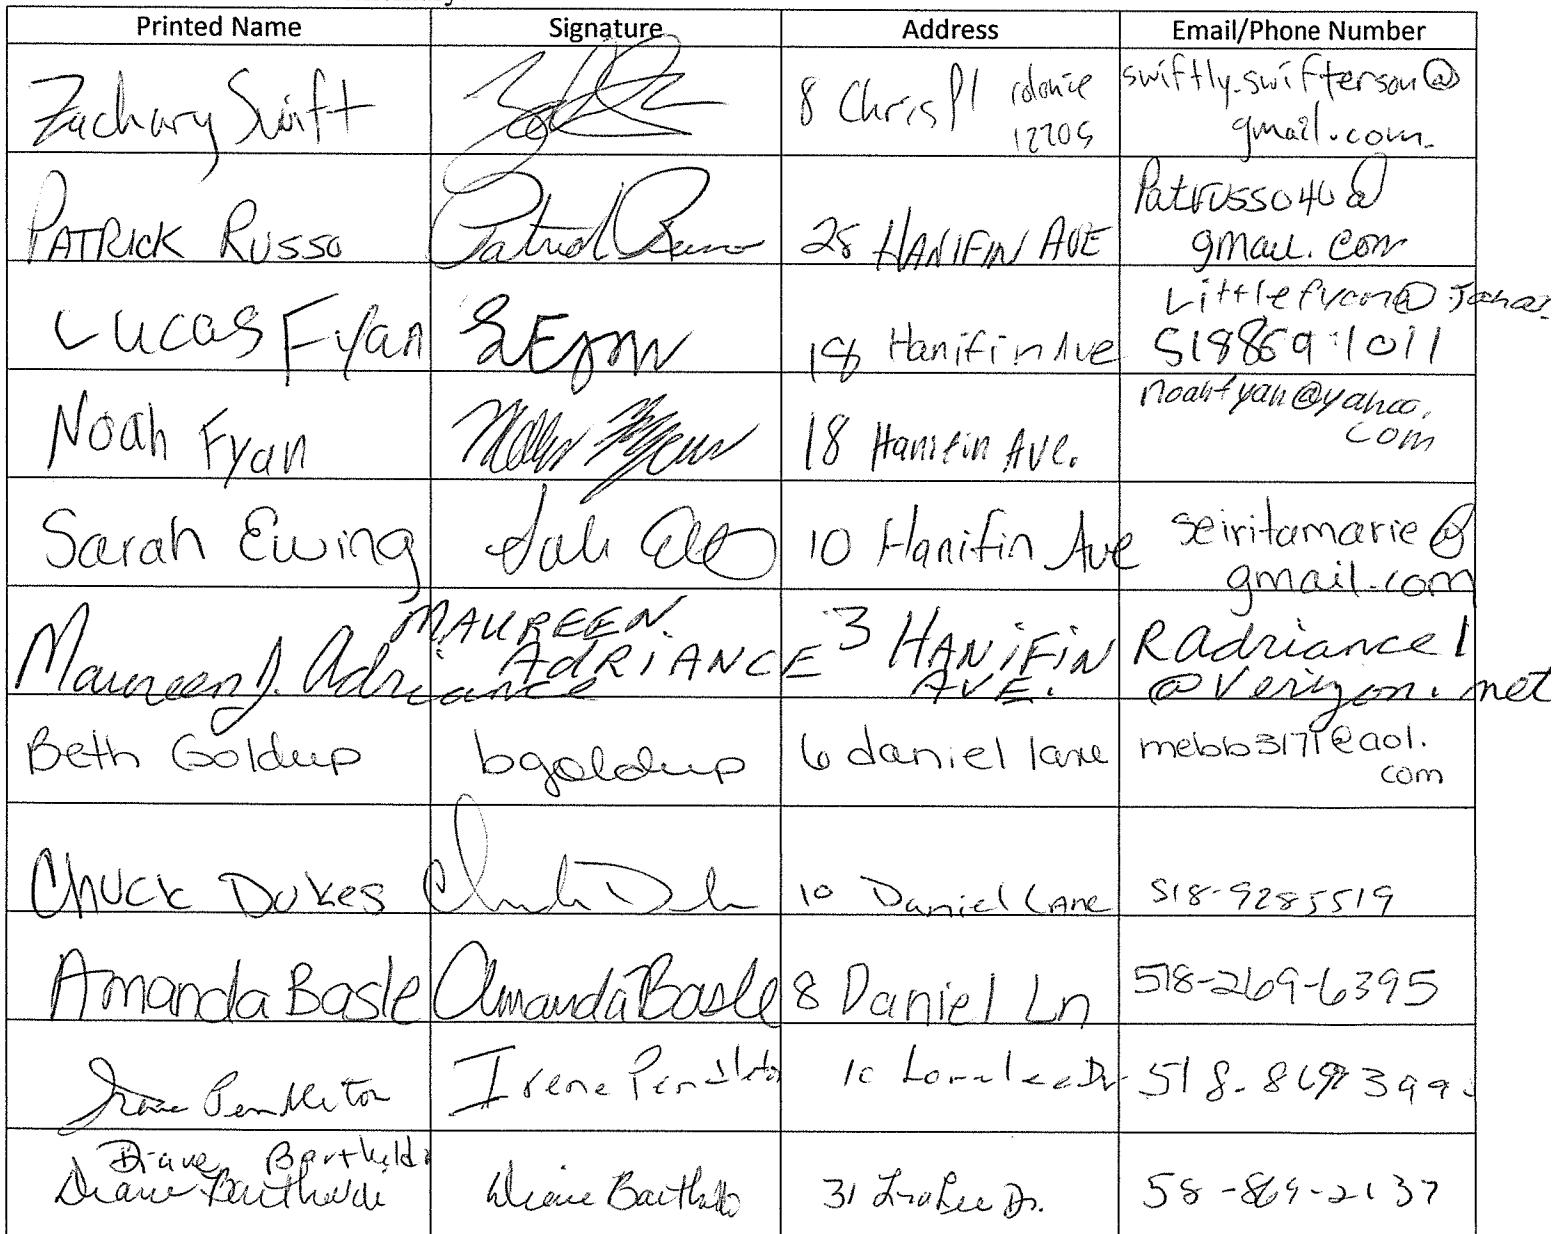 Printed Name Signature Address Email/Phone Number
Zachary Swift 8 Chris Pl colonie swiftly.swifterson@
12205 gmail.com.
PATRICK RUSSO Patrick Russo 28 HANIFIN AVE Patrusso40@
gmail.com
Lucas Fyan 18 Hanifin Ave
518869-1011
Noah Fyan Noah Fyan 18 Hanifin Ave. noahfyan@yahoo.
com
Sarah Ewing 10 Hanifin Ave seiritamarie@
gmail.com
MAUREEN 3 HANiFiN RAdriance1
Maureen J. Adriance ADRIANCE AVE. @Verizon.net
Beth Goldup bgoldup 6 daniel lane mebb3171@aol.
com
Chuck Dukes 10 Daniel Lane 518-9285519
Amanda Basle Amanda Basle 8 Daniel Ln 518-269-6395
Irene Pendleton Irene Pendleton 518-869
Diane
Diane Diane 31 Dr. 58-869-2137